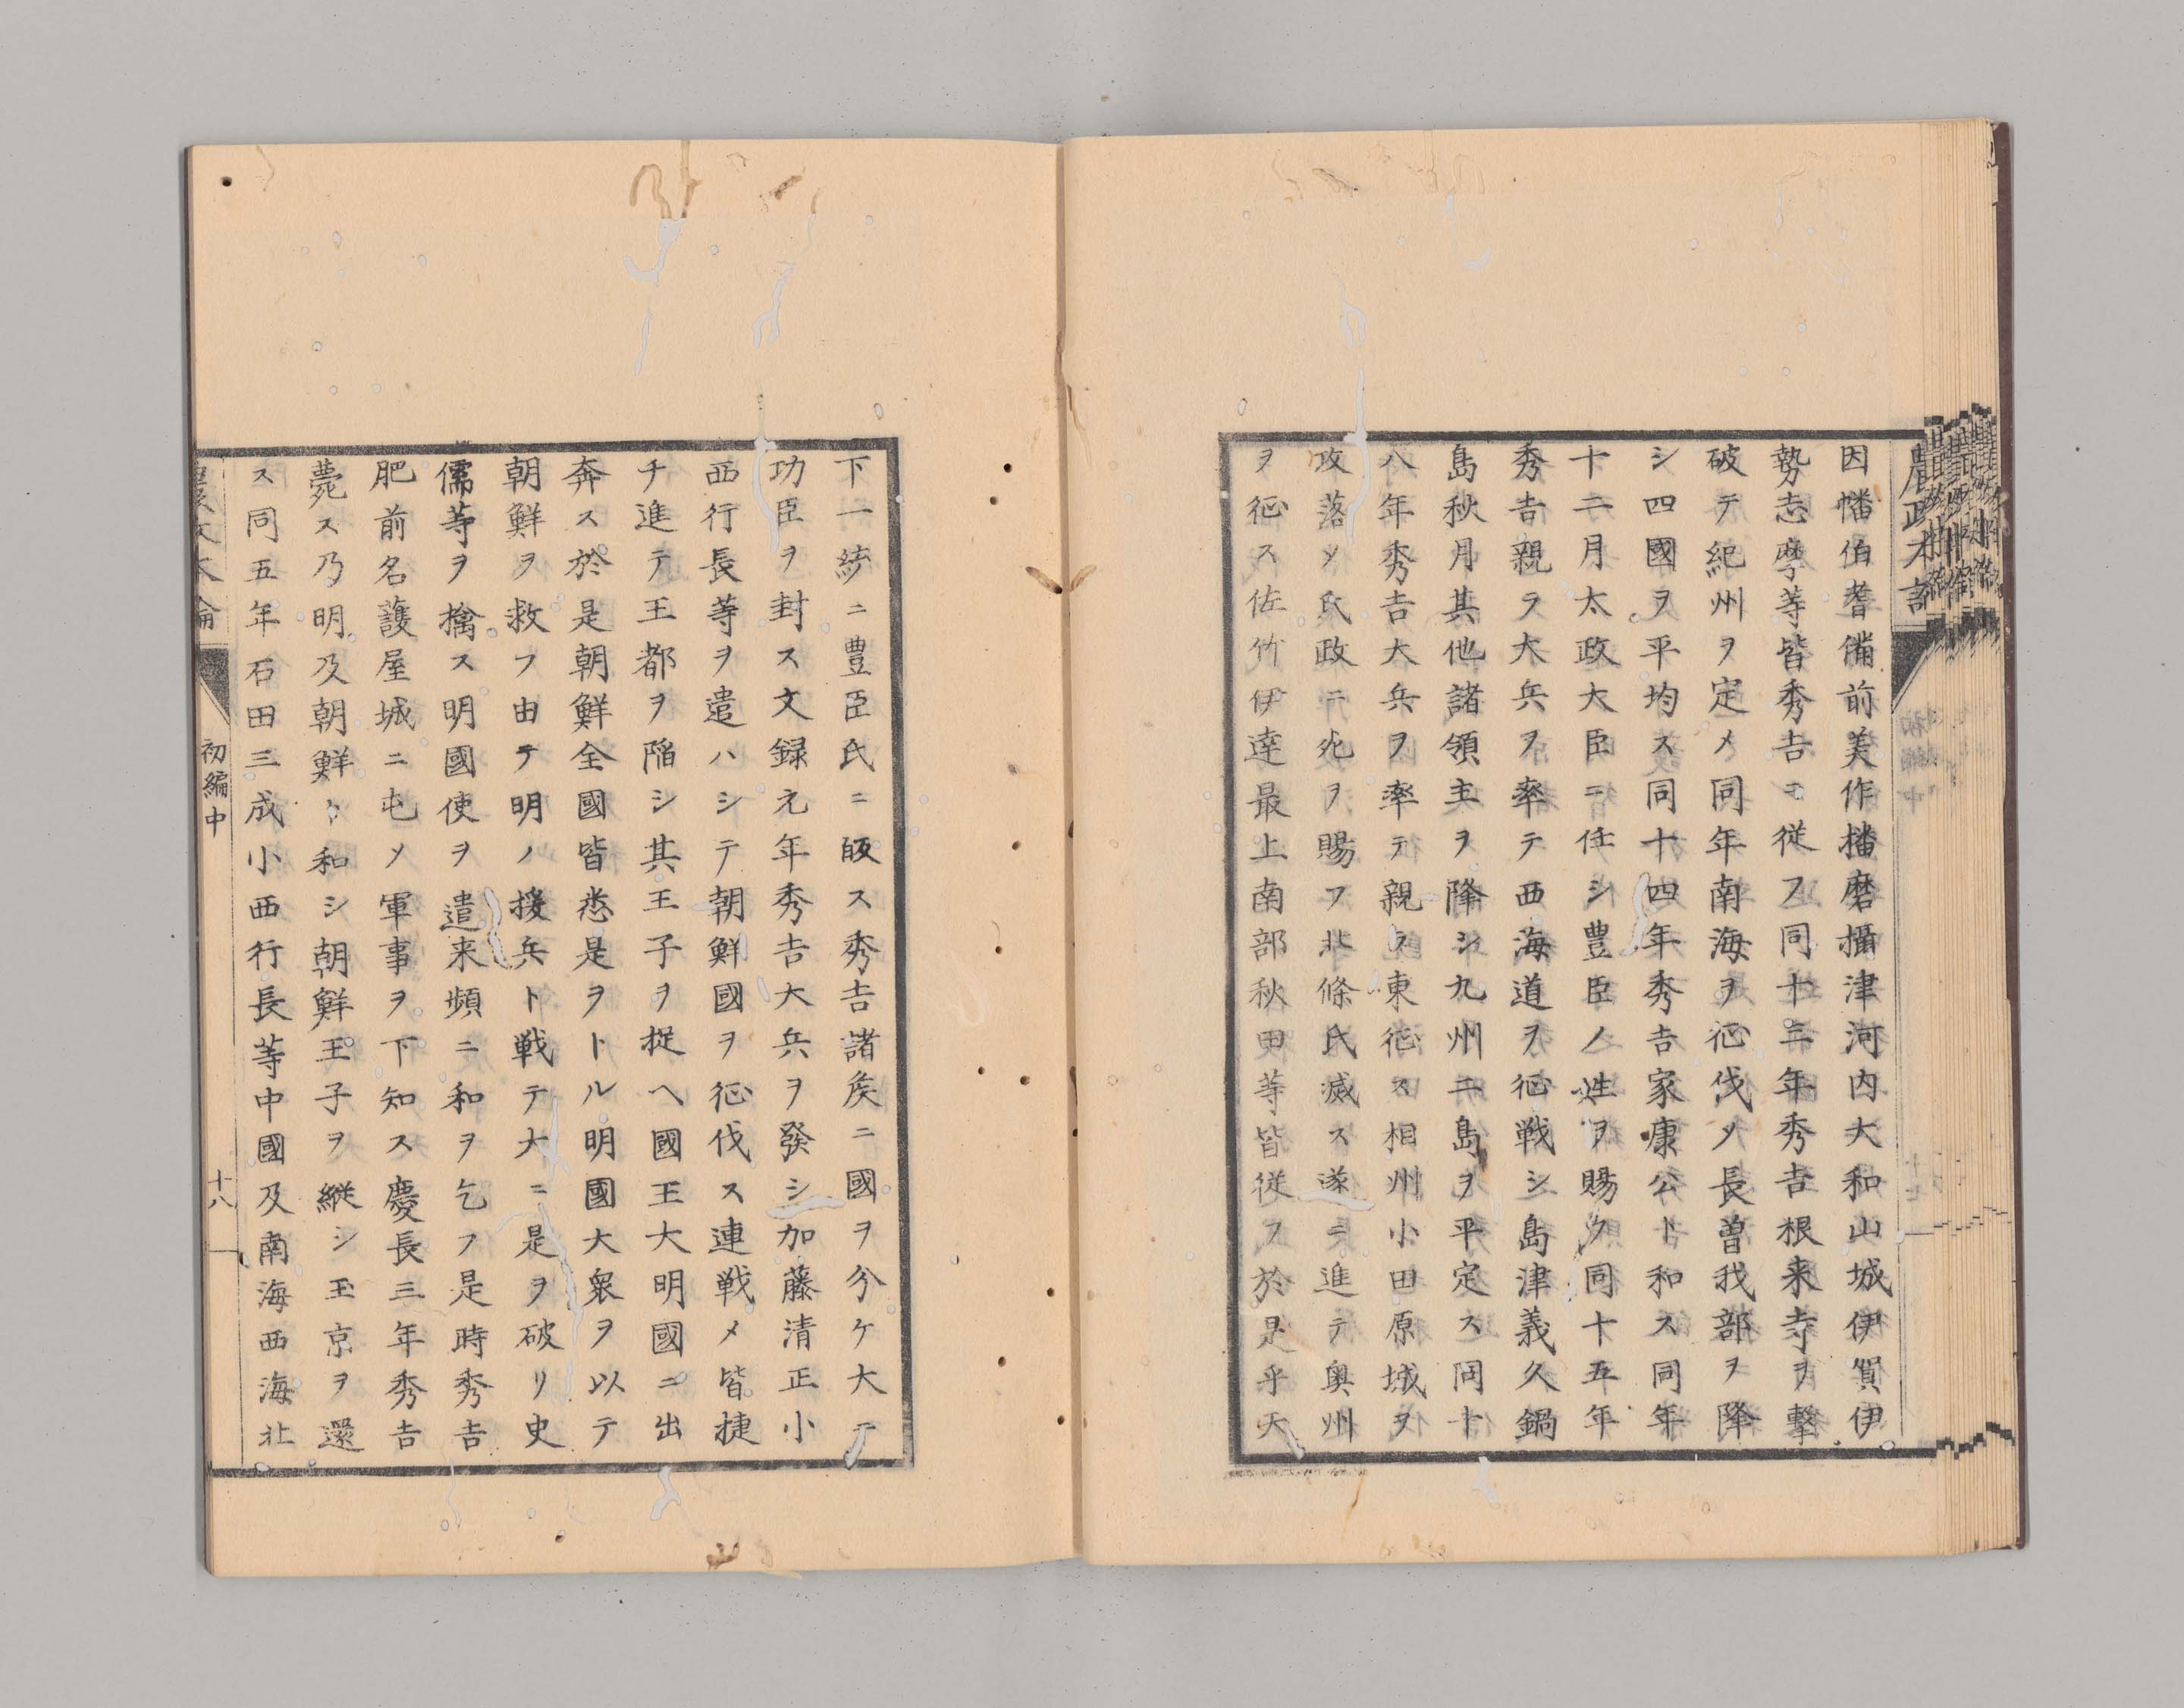 因幡伯耆備前美作播磨攝津河内大和山城伊賀伊
勢志摩等皆秀吉ニ従フ同十三年秀吉根来寺ヲ撃
破テ紀州ヲ定メ同年南海ヲ征伐ソ長曽我部ヲ降
シ四國ヲ平均ス同十四年秀吉家康公ト和ス同年
十二月太政大臣ニ任シ豊臣ノ姓ヲ賜フ同十五年
秀吉親ラ大兵ヲ率テ西海道ヲ征戦シ島津義久鍋
島秋月其他諸領主ヲ降シ九州二島ヲ平定ス同十
八年秀吉大兵ヲ率テ親ヲ東征ス相州小田原城ヲ
攻落ソ氏政ニ死ヲ賜フ北條氏滅ス遂ニ進テ奥州
ヲ征ス佐竹伊達最上南部秋田等皆従フ於是乎天
下一統ニ豊臣氏ニ皈ス秀吉諸矦ニ國ヲ分ケ大ニ
功臣ヲ封ス文録元年秀吉大兵ヲ發シ加藤清正小
西行長等ヲ遣ハシテ朝鮮國ヲ征伐ス連戦メ皆捷
チ進テ王都ヲ陥シ其王子ヲ捉ヘ國王大明國ニ出
奔ス於是朝鮮全國皆悉是ヲトル明國大衆ヲ以テ
朝鮮ヲ救フ由テ明ノ援兵ト戦テ大ニ是ヲ破リ史
儒等ヲ擒ス明國使ヲ遣来頻ニ和ヲ乞フ是時秀吉
肥前名護屋城ニ屯ソ軍事ヲ下知ス慶長三年秀吉
薨ス乃明及朝鮮ト和シ朝鮮王子ヲ縦シ王京ヲ還
ス同五年石田三成小西行長等中國及南海西海北
初編中
十八